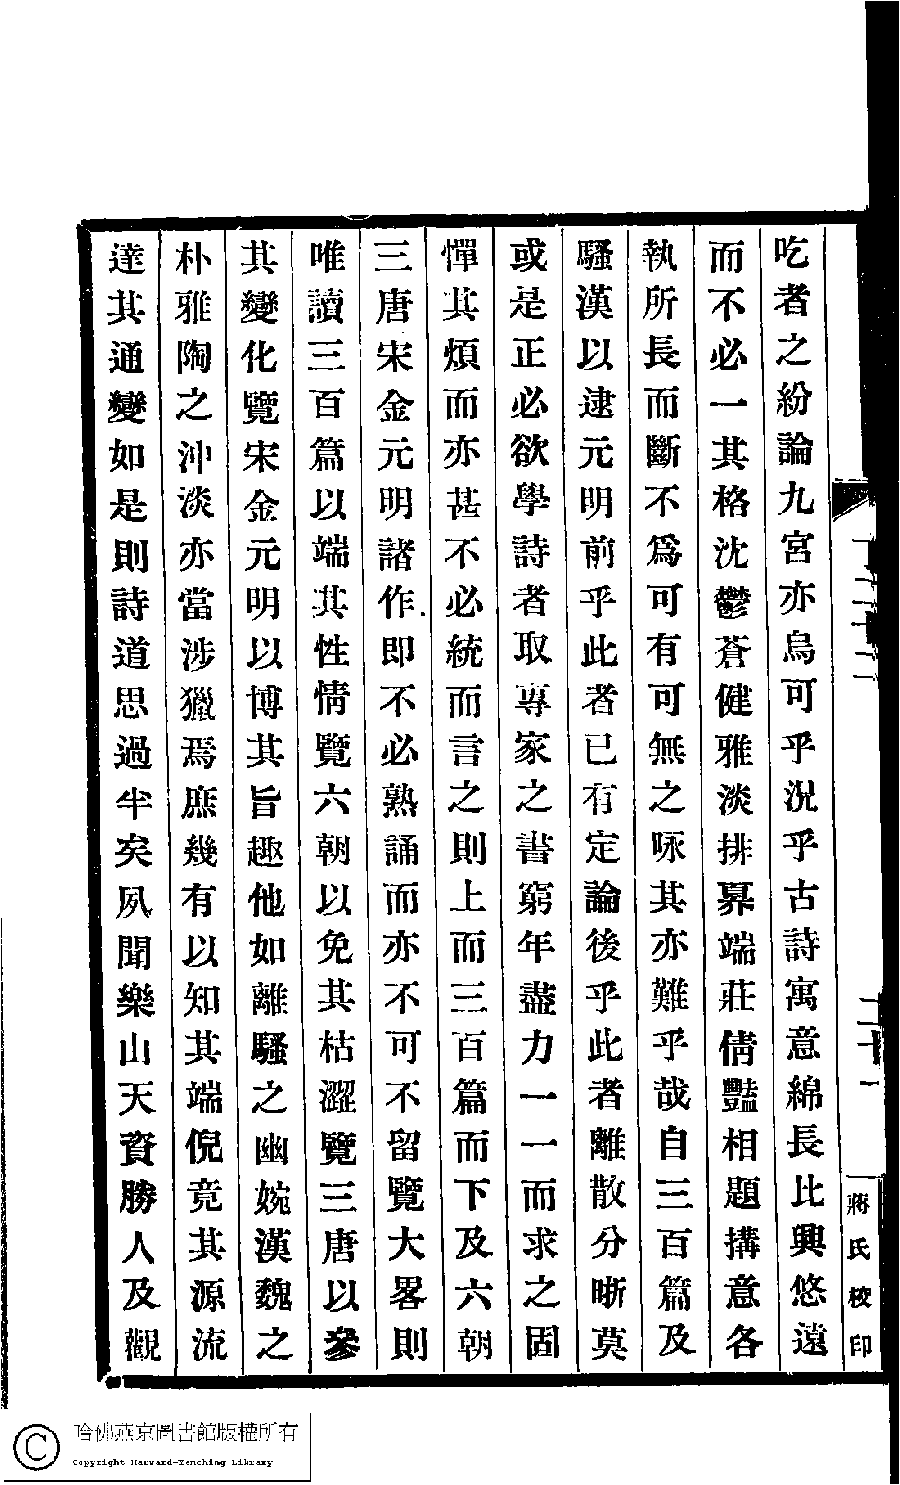 吃者之紛論九宮亦烏可乎況乎古詩寓意綿長比興悠遠
而不必一其格沈鬱蒼健雅淡排奡端莊倩豔相題搆意各
執所長而斷不爲可有可無之咏其亦難乎哉自三百篇及
騷漢以逮元明前乎此者已有定論後乎此者離散分晰莫
或是正必欲學詩者取專家之書窮年盡力一一而求之固
憚其煩而亦甚不必統而言之則上而三百篇而下及六朝
三唐宋金元明諸作即不必熟誦而亦不可不留覽大畧則
唯讀三百篇以端其性情覽六朝以免其枯澀覽三唐以參
其變化覽宋金元明以博其旨趣他如離騷之幽婉漢魏之
朴雅陶之沖淡亦當涉獵焉庶幾有以知其端倪竟其源流
達其通變如是則詩道思過半矣夙聞樂山天資勝人及觀
二十一
蔣氏校印
哈佛燕京圖書館版權所有
Copyright Harvard-Yenching Library